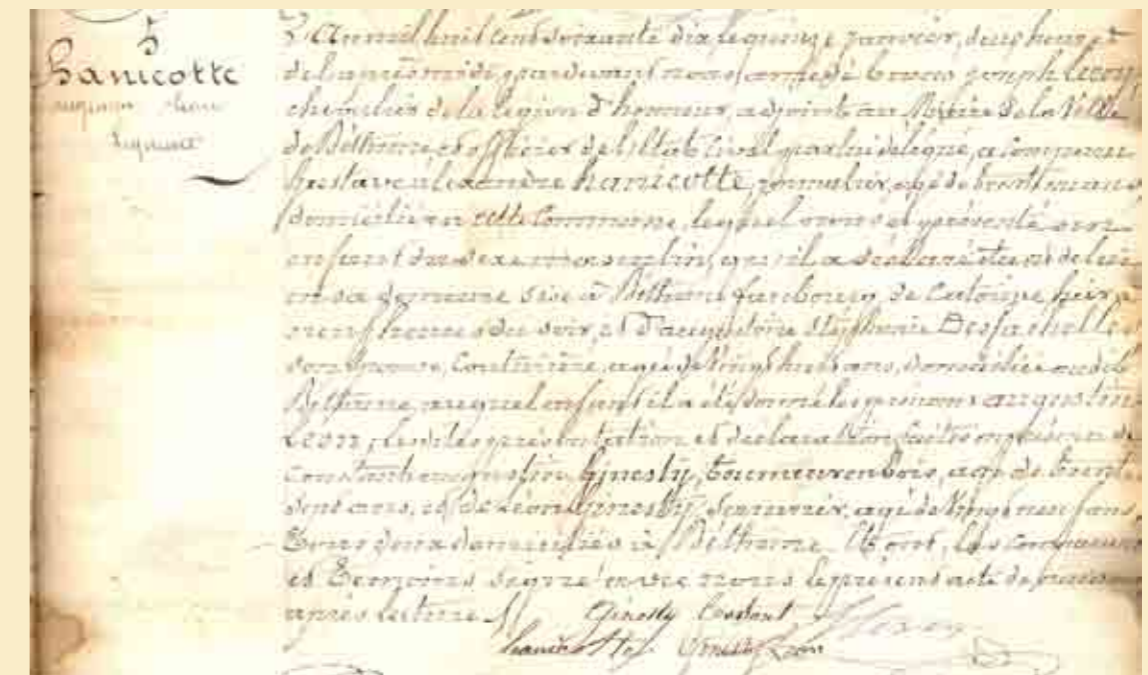 5
hanicotte
augustin Léon
Légitimé
L'An mil huit cent soixante dix, le quinze janvier, deux heures
de l'après midi, pardevant nous, joseph Leroy,
chevalier de la légion d'honneur, adjoint au Maire de la Ville
de Béthune et officier de l'état civil par lui délégué, a comparu
Gustave alexandre hanicotte, âgé de trente un ans,
domicilié en cette Commune, lequel nous a présenté un
enfant du sexe masculin, qu'il a déclaré être né de lui
en sa demeure sise à Béthune faubourg de Catorive, hier, à
neuf heures du soir, et d'augustine Stéphanie Desfachelles
son épouse, Couturière, agée de vingt huit ans, domiciliée audit
Béthune, auquel enfant il a été donné les prénoms augustin
Léon, lesdites présentation et déclaration faites en présence de
Constant augustin Ginesty, tourneur en bois, agé de trente
ans, et de Léon Ginesty, serrurier, agé de vingt neuf ans,
tous deux domiciliés à Béthune. Et ont, les comparant
et témoins signé avec nous le présent acte de naissance
après lecture.
Ginesty Constant
hanicotte Ginesty Léon